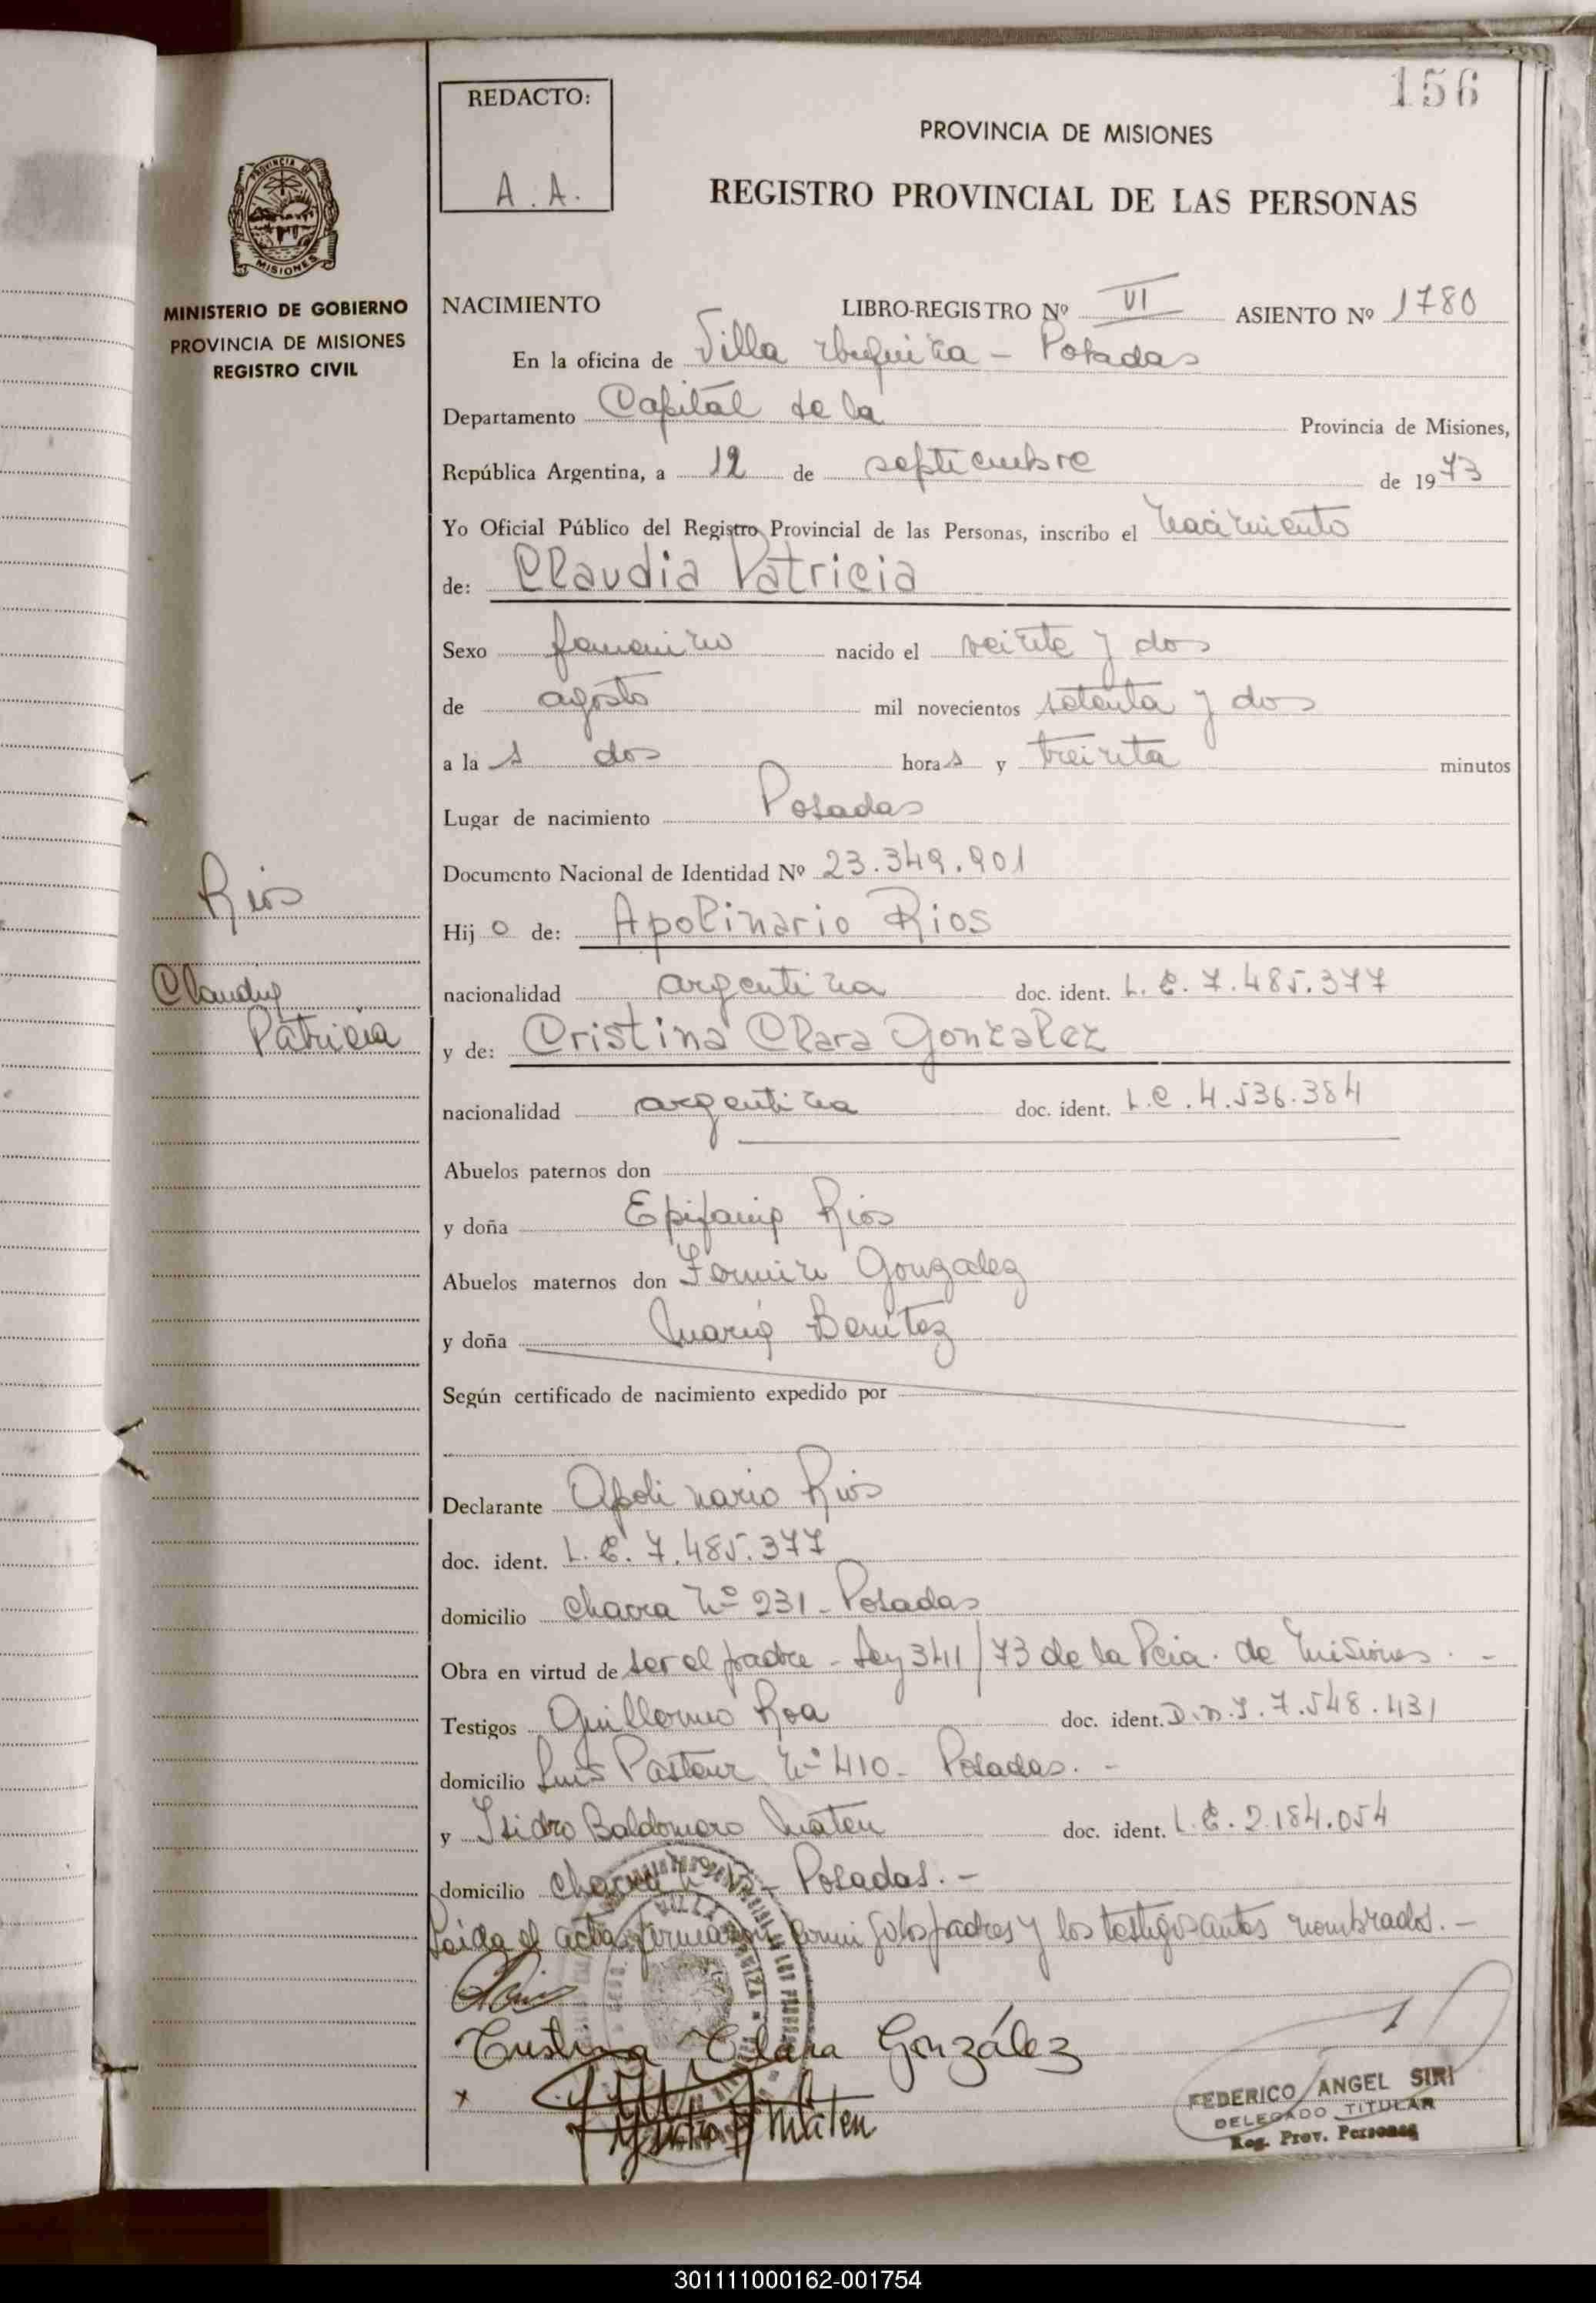 156
REDACTO:
A. A.
PROVINCIA DE MISIONES
REGISTRO PROVINCIAL DE LAS PERSONAS
PROVINCIA DE
MISIONES
MINISTERIO DE GOBIERNO
PROVINCIA DE MISIONES
REGISTRO CIVIL
NACIMIENTO LIBRO-REGISTRO Nº VI ASIENTO Nº 1780
En la oficina de Villa - Posadas
Departamento Capital de la Provincia de Misiones,
República Argentina, a 12 de septiembre de 1973
Yo Oficial Público del Registro Provincial de las Personas, inscribo el nacimiento
de: Claudia Patricia
Sexo femenino nacido el veinte y dos
de agosto mil novecientos setenta y dos
a la s dos horas y treinta minutos
Lugar de nacimiento Posadas
Documento Nacional de Identidad Nº 23.349.901
Rios
Hijo de: Apolinario Rios
Claudia
nacionalidad argentina doc. ident. L. E. 7.485.377
Patricia
y de: Cristina Clara Gonzalez
nacionalidad argentina doc. ident. L.C. 4.536.384
Abuelos paternos don
y doña Epifania Rios
Abuelos maternos don Fermin Gonzalez
y doña Maria Benitez
Según certificado de nacimiento expedido por
Declarante Apolinario Rios
doc. ident. L. E. 7.485.377
domicilio Chacra Nº 231 - Posadas
Obra en virtud de ser el padre - Ley 341/73 de la Pcia. de Misiones. -
Testigos Guillermo Roa doc. ident. D.N.I. 7.548.431
domicilio Luis Pasteur Nº 410 - Posadas. -
y Isidro Baldomero Maten doc. ident. L.E. 2.184.054
domicilio Chacra - Posadas. -
Leida el acta padres y los testigos antes nombrados. -
Cristina Clara González
x
Maten
FEDERICO ANGEL SIRI
DELEGADO TITULAR
Reg. Prov. Personas
301111000162-001754